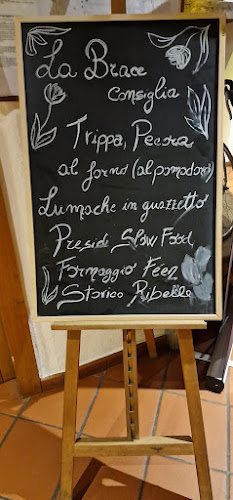 La Brace
consiglia
Trippa, Pecora
al forno (al pomodoro)
Lumache in guazzetto
Presidi Slow Food
Formaggio Féen
Storico Ribelle